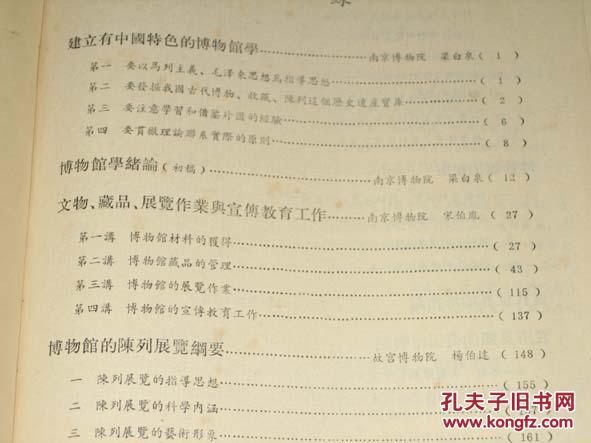 錄
建立有中國特色的博物館學……南京博物院 梁白泉( 1 )
第一 要以馬列主義、毛澤東思想爲指導思想……( 1 )
第二 要發掘我國古代博物、收藏、陳列這個歷史遺產寶庫……( 2 )
第三 要注意學習和借鑒外國的經驗……( 6 )
第四 要貫徹理論聯系實際的原則……( 8 )
博物館學緒論(初稿)……南京博物院 梁白泉( 12 )
文物、藏品、展覽作業與宣傳教育工作……南京博物院 宋伯胤( 27 )
第一講 博物館材料的獲得……( 27 )
第二講 博物館藏品的管理……( 43 )
第三講 博物館的展覽作業……( 115 )
第四講 博物館的宣傳教育工作……( 137 )
博物館的陳列展覽綱要……故宮博物院 楊伯達( 148 )
一 陳列展覽的指導思想……( 155 )
二 陳列展覽的科學内涵……
三 陳列展覽的藝術形象……( 161 )
孔夫子旧书网